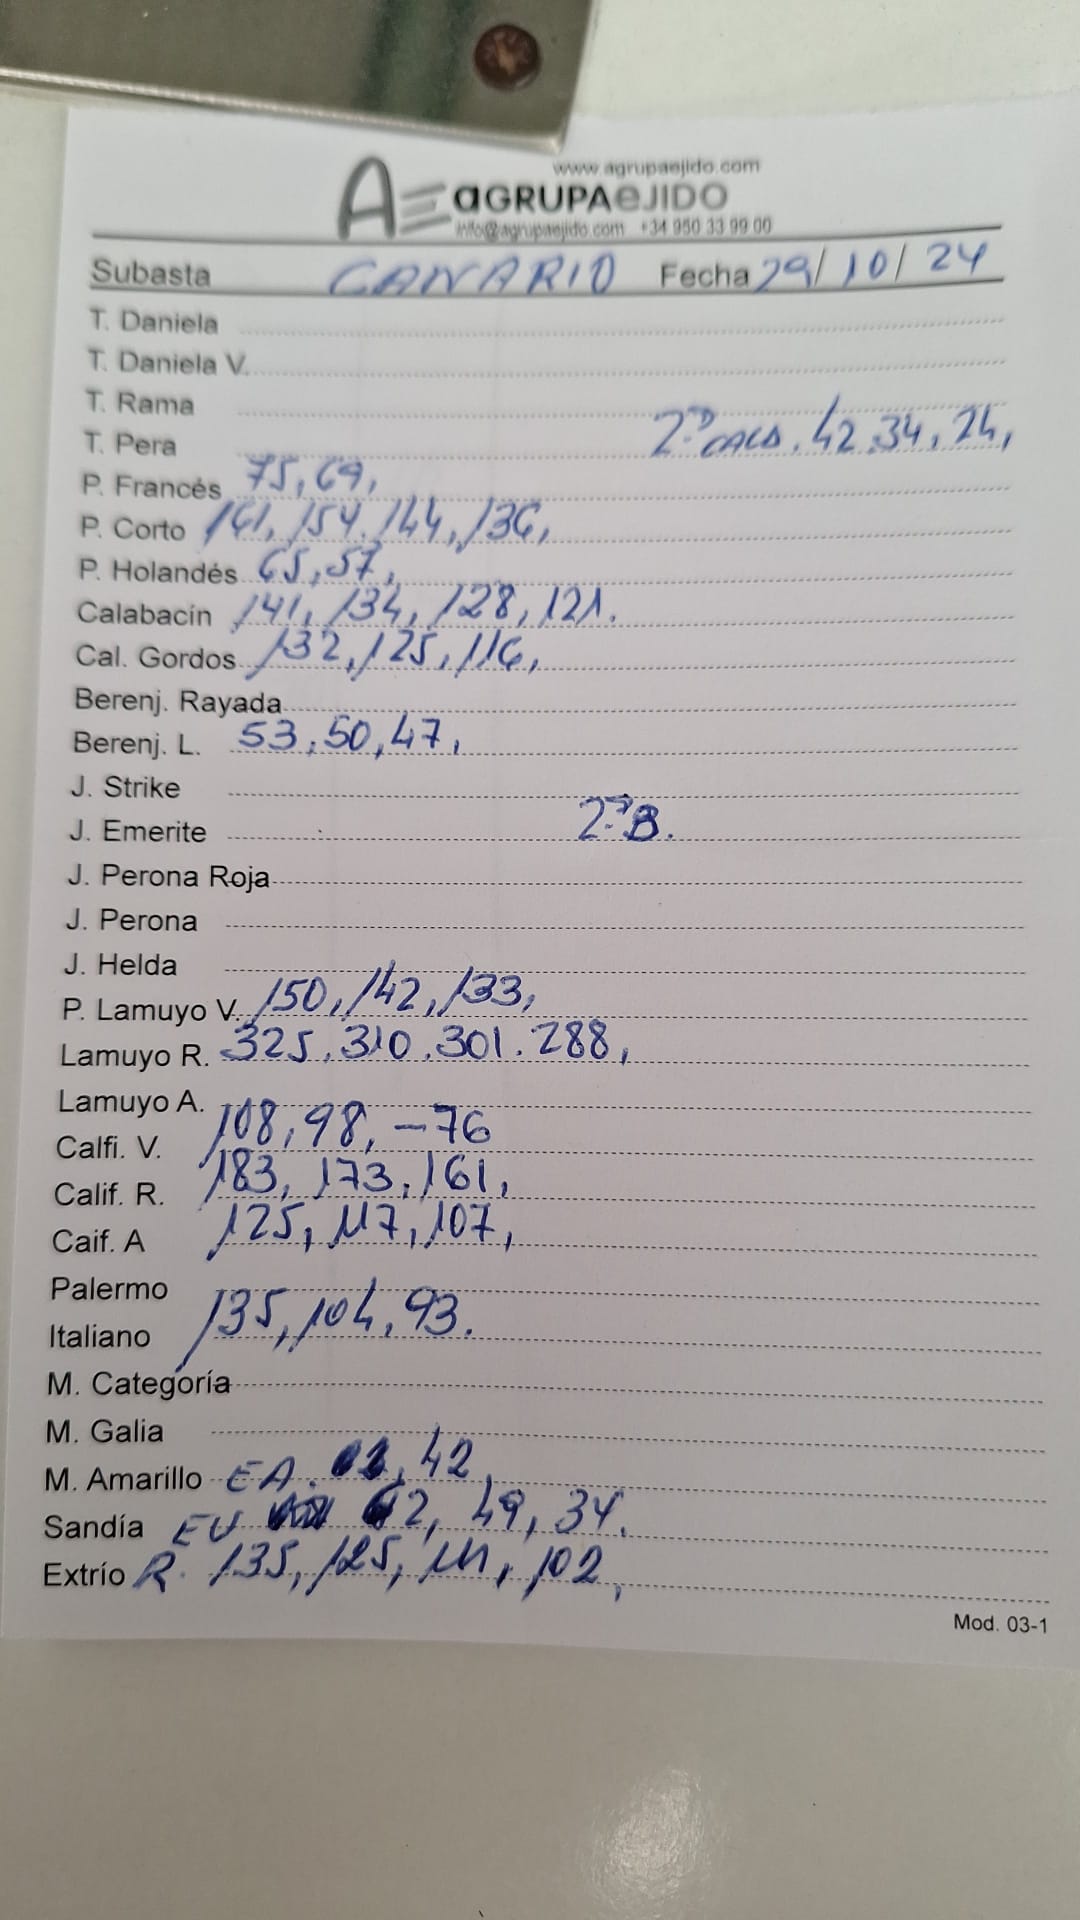 www.agrupaejido.com
AE aGRUPAeJIDO
info@agrupaejido.com +34 950 33 99 00
Subasta CANARIO Fecha 29/10/24
T. Daniela
T. Daniela V.
T. Rama
T. Pera 2ª CALA. 42.34, 24,
P. Francés 75, 69,
P. Corto 161, 154. 144, 136,
P. Holandés 65, 57,
Calabacín 141, 134, 128, 121.
Cal. Gordos 132, 125, 116,
Berenj. Rayada
Berenj. L. 53, 50, 47,
J. Strike
J. Emerite 2ª B.
J. Perona Roja
J. Perona
J. Helda
P. Lamuyo V. 150, 142, 133,
Lamuyo R. 325, 310, 301. 288,
Lamuyo A.
Calfi. V. 108, 98, -76
Calif. R. 183, 173, 161,
Caif. A 125, 117, 107,
Palermo
Italiano 135, 104, 93.
M. Categoría
M. Galia
M. Amarillo EA. , 42,
Sandía EV 62, 49, 34.
Extrío R. 135, 125, 111, 102,
Mod. 03-1